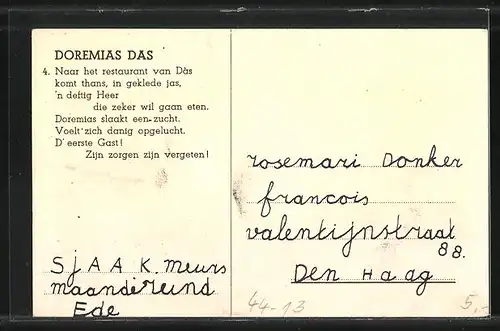 DOREMIAS DAS
4. Naar het restaurant van Das
komt thans, in geklede jas,
'n deftig Heer
die zeker wil gaan eten.
Doremias slaakt een zucht.
Voelt zich danig opgelucht.
D' eerste Gast!
Zijn zorgen zijn vergeten!
SjAAK meurs
maandereind
Ede
rosemari Donker
francois
valentijnstraat
88.
Den Haag
44-13
5,-